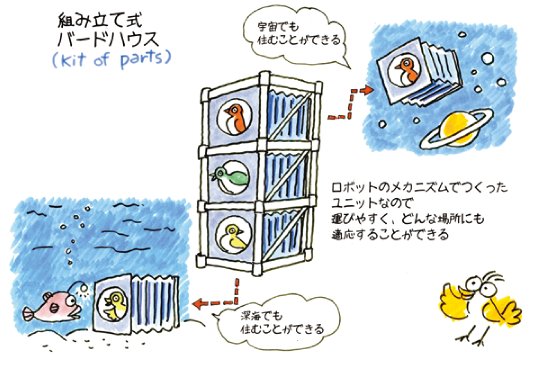 組み立て式
バードハウス
(kit of parts)
宇宙でも
住むことができる
ロボットのメカニズムでつくった
ユニットなので
運びやすく、どんな場所にも
適応することができる
深海でも
住むことができる